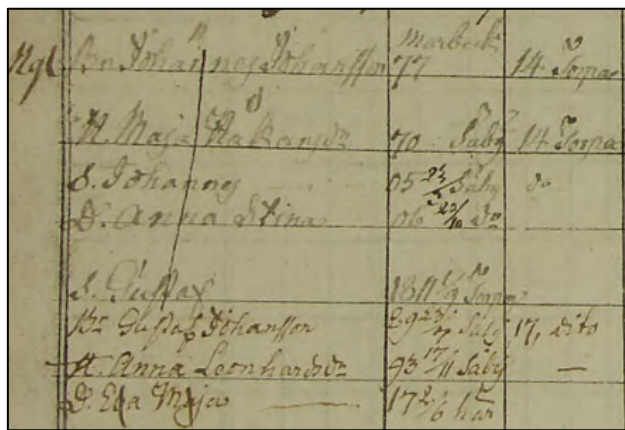 Marbeck
Bn Johannes Johansson 77 14 Torpa
H. Maja Håkansdr 70 Säby 14 Torpa
S. Johannes 05 Säby do
D. Anna Stina 06 do
S. Gustaf 1811 Torpa
Br Gustaf Johansson Säby 17, dito
H. Anna Leonhardsdr 93 17/11 Säby —
D. Eva Maja 17 2/6 här